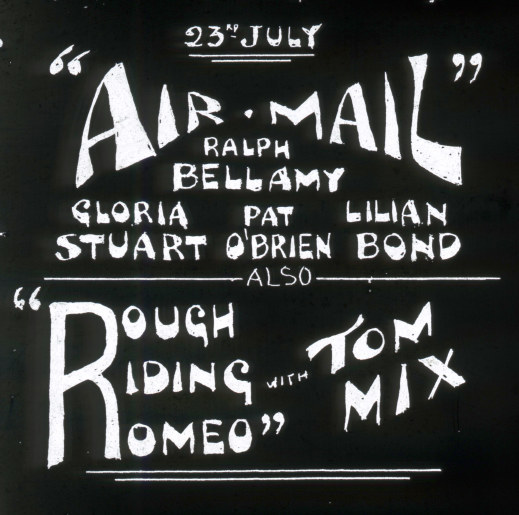 23RD JULY
"AIR·MAIL"
RALPH
BELLAMY
GLORIA PAT LILIAN
STUART O'BRIEN BOND
ALSO
"ROUGH
RIDING
ROMEO"
WITH
TOM
MIX